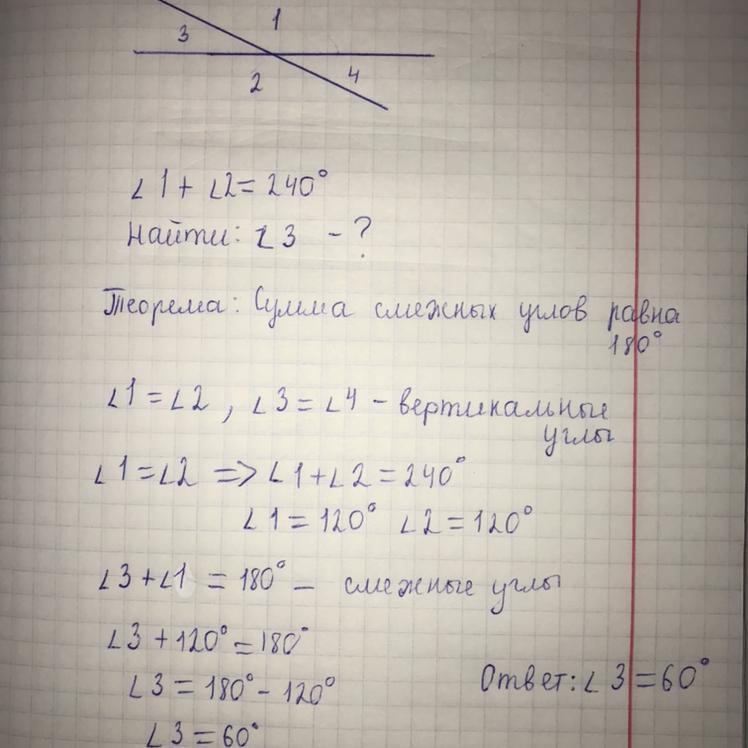 1
3
2
4
∠1 + ∠2 = 240°
Найти: ∠3 - ?
Теорема: Сумма смежных углов равна
180°
∠1 = ∠2 , ∠3 = ∠4 - вертикальные
углы
∠1 = ∠2 => ∠1 + ∠2 = 240°
∠1 = 120° ∠2 = 120°
∠3 + ∠1 = 180° - смежные углы
∠3 + 120° = 180°
∠3 = 180° - 120°
Ответ: ∠3 = 60°
∠3 = 60°